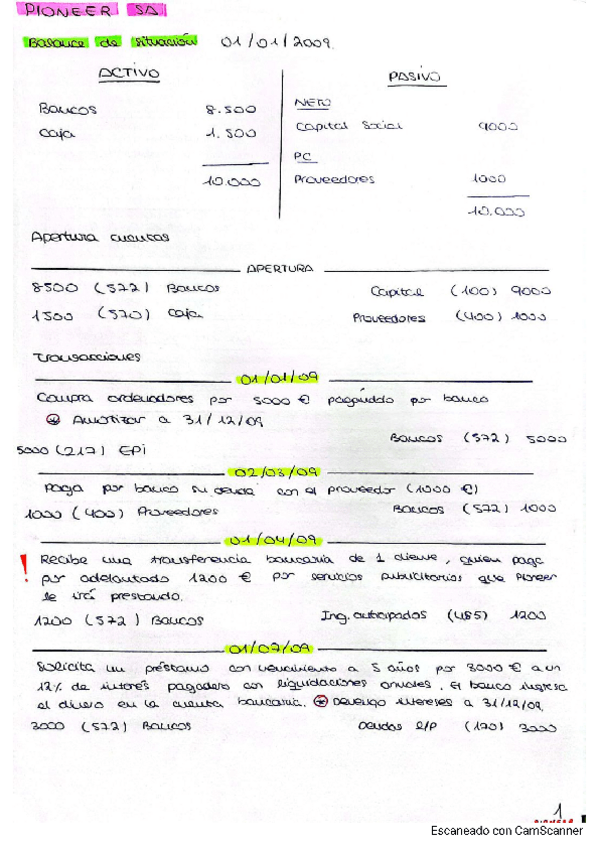 PIONEER SA
Balance de situación 01/01/2009.
ACTIVO
PASIVO
Bancos 8.500
Caja 1.500
10.000
NETO
Capital Social 9000
PC
Proveedores 1000
10.000
Apertura cuentas
APERTURA
8500 (572) Bancos Capital (100) 9000
1500 (570) Caja Proveedores (400) 1000
Transacciones
01/01/09
Compra ordenadores por 5000 € pagándolo por banco
* Amortizar a 31/12/09
Bancos (572) 5000
5000 (217) EPI
02/03/09
Paga por banco su deuda con el proveedor (1000 €)
1000 (400) Proveedores Bancos (572) 1000
01/04/09
! Recibe una transferencia bancaria de 1 cliente, quien paga
por adelantado 1200 € por servicios publicitarios que Pioneer
le irá prestando.
1200 (572) Bancos Ing. anticipados (485) 1200
01/07/09
Solicita un préstamo con vencimiento a 5 años por 3000 € a un
12% de interés pagadero con liquidaciones anuales. El banco ingresa
el dinero en la cuenta bancaria. * Devengo intereses a 31/12/09.
3000 (572) Bancos Deudas l/p (170) 3000
1
Escaneado con CamScanner